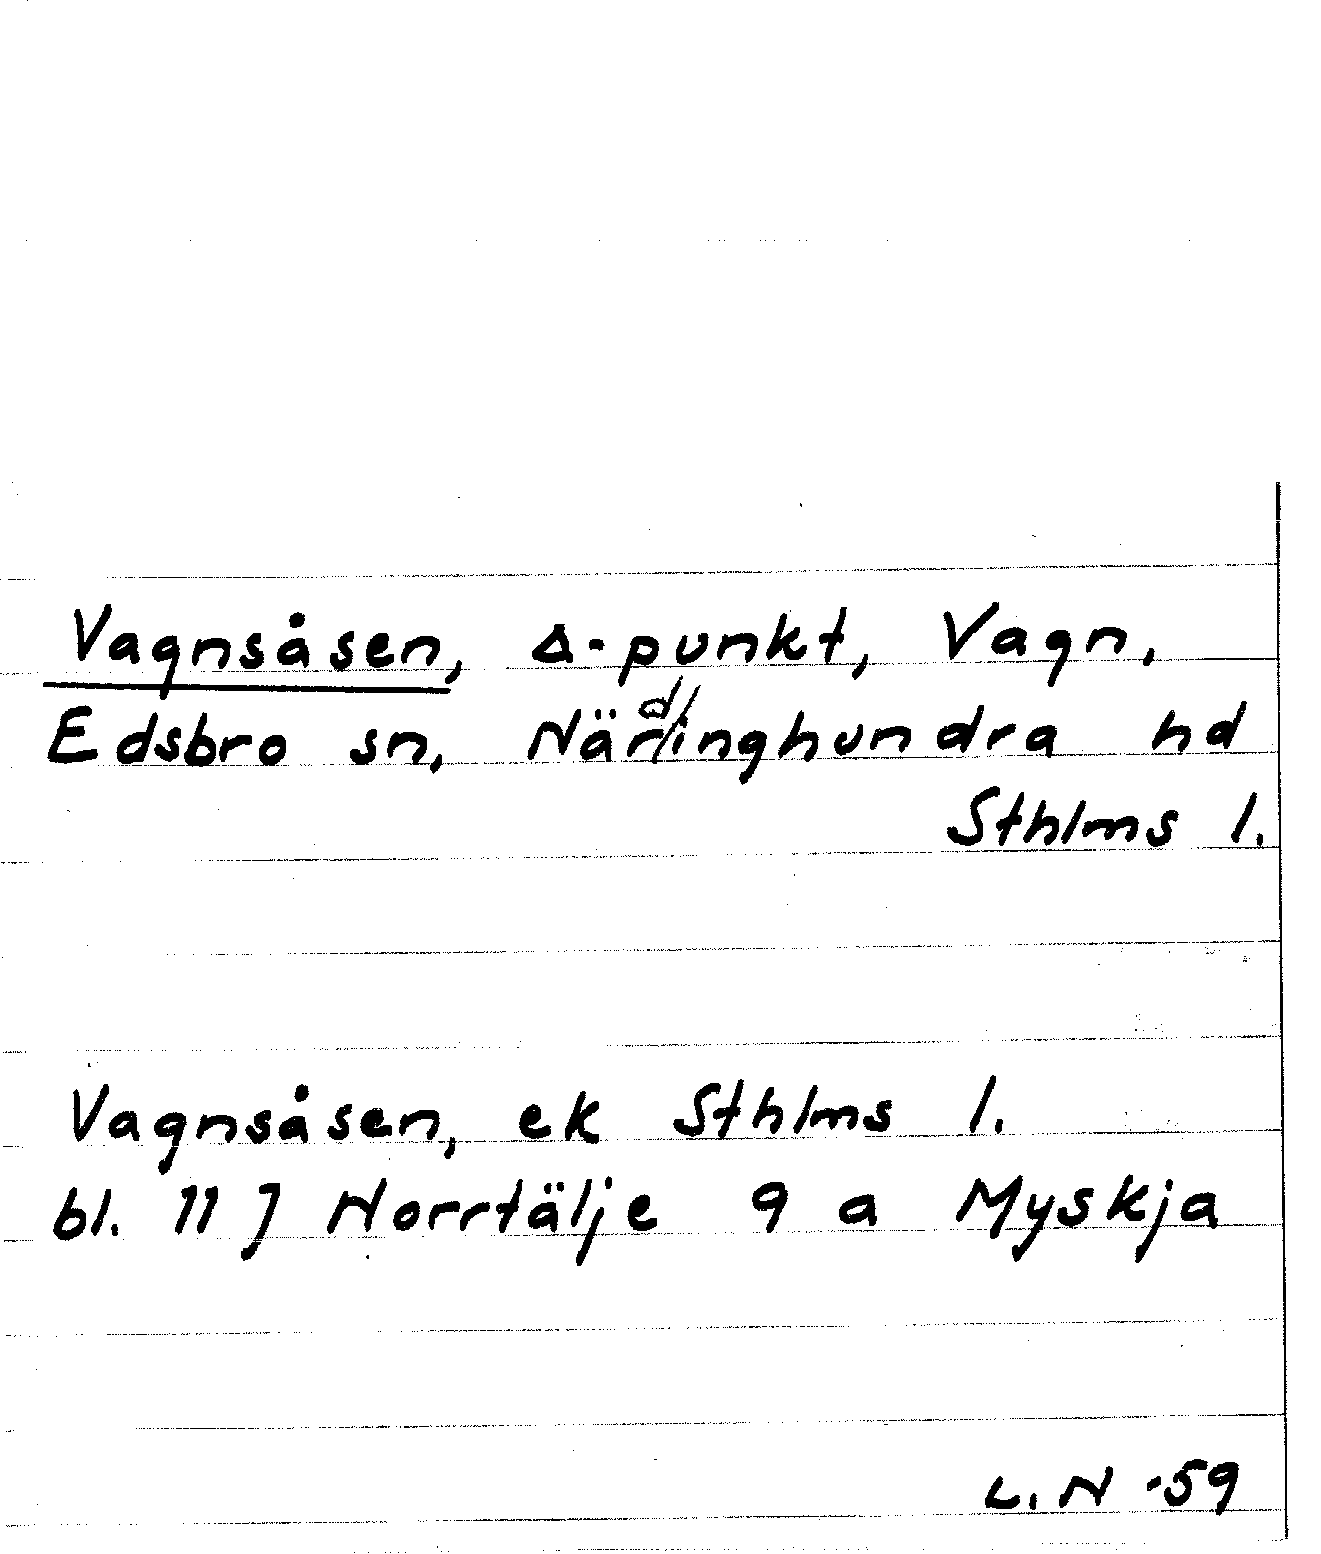 Vagnsåsen, Δ-punkt, Vagn,
Edsbro sn, Närdinghundra hd
Sthlms l.
Vagnsåsen, ek Sthlms l.
bl. 11 J Norrtälje 9 a Myskja
L. N -59